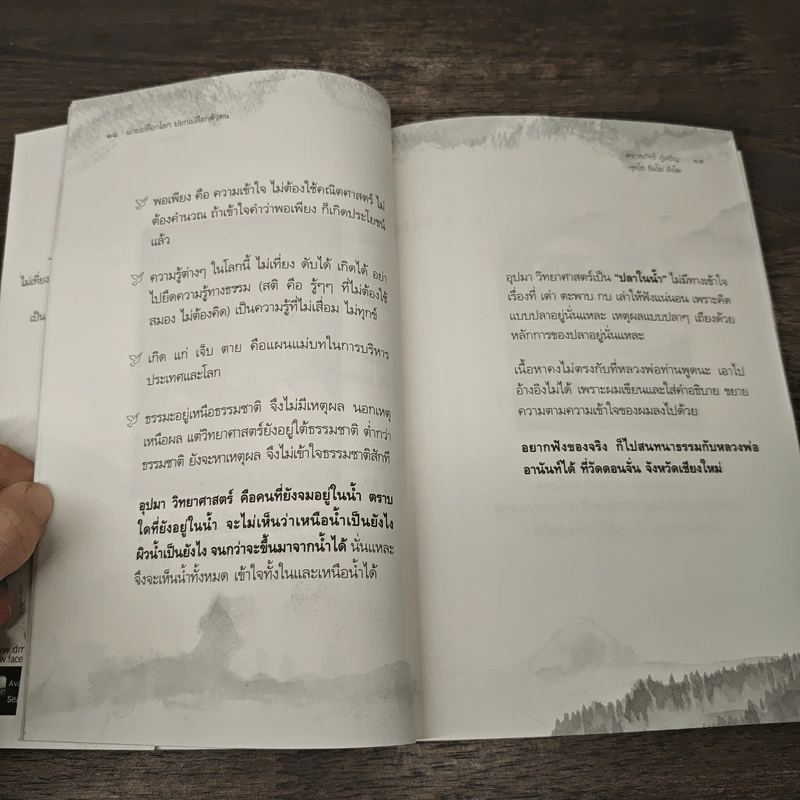 แกะเปลือกโลก ปอกเปลือกตัวตน
พอเพียง คือ ความเข้าใจ ไม่ต้องใช้คณิตศาสตร์ ไม่
ต้องคำนวณ ถ้าเข้าใจคำว่าพอเพียง ก็เกิดประโยชน์
แล้ว
ความรู้ต่างๆ ในโลกนี้ ไม่เที่ยง ดับได้ เกิดได้ อย่า
ไปยึดความรู้ทางธรรม (สติ คือ รู้ๆๆ ที่ไม่ต้องใช้
สมอง ไม่ต้องคิด) เป็นความรู้ที่ไม่เสื่อม ไม่ทุกข์
เกิด แก่ เจ็บ ตาย คือแผนแม่บทในการบริหาร
ประเทศและโลก
ธรรมะอยู่เหนือธรรมชาติ จึงไม่มีเหตุผล นอกเหตุ
เหนือผล แต่วิทยาศาสตร์ยังอยู่ใต้ธรรมชาติ ต่ำกว่า
ธรรมชาติ ยังจะหาเหตุผล จึงไม่เข้าใจธรรมชาติสักที
อุปมา วิทยาศาสตร์ คือคนที่ยังจมอยู่ในน้ำ ตราบ
ใดที่ยังอยู่ในน้ำ จะไม่เห็นว่าเหนือน้ำเป็นยังไง
ผิวน้ำเป็นยังไง จนกว่าจะขึ้นมาจากน้ำได้ นั่นแหละ
จึงจะเห็นน้ำทั้งหมด เข้าใจทั้งในและเหนือน้ำได้
ไม่เที่ยง
เป็น
อุปมา วิทยาศาสตร์เป็น "ปลาในน้ำ" ไม่มีทางเข้าใจ
เรื่องที่ เต่า ตะพาบ กบ เล่าให้ฟังแน่นอน เพราะคิด
แบบปลาอยู่นั่นแหละ เหตุผลแบบปลาๆ เถียงด้วย
หลักการของปลาอยู่นั่นแหละ
เนื้อหาคงไม่ตรงกับที่หลวงพ่อท่านพูดนะ เอาไป
อ้างอิงไม่ได้ เพราะผมเขียนและใส่คำอธิบาย ขยาย
ความตามความเข้าใจของผมลงไปด้วย
อยากฟังของจริง ก็ไปสนทนาธรรมกับหลวงพ่อ
อานันท์ได้ ที่วัดดอนจั่น จังหวัดเชียงใหม่